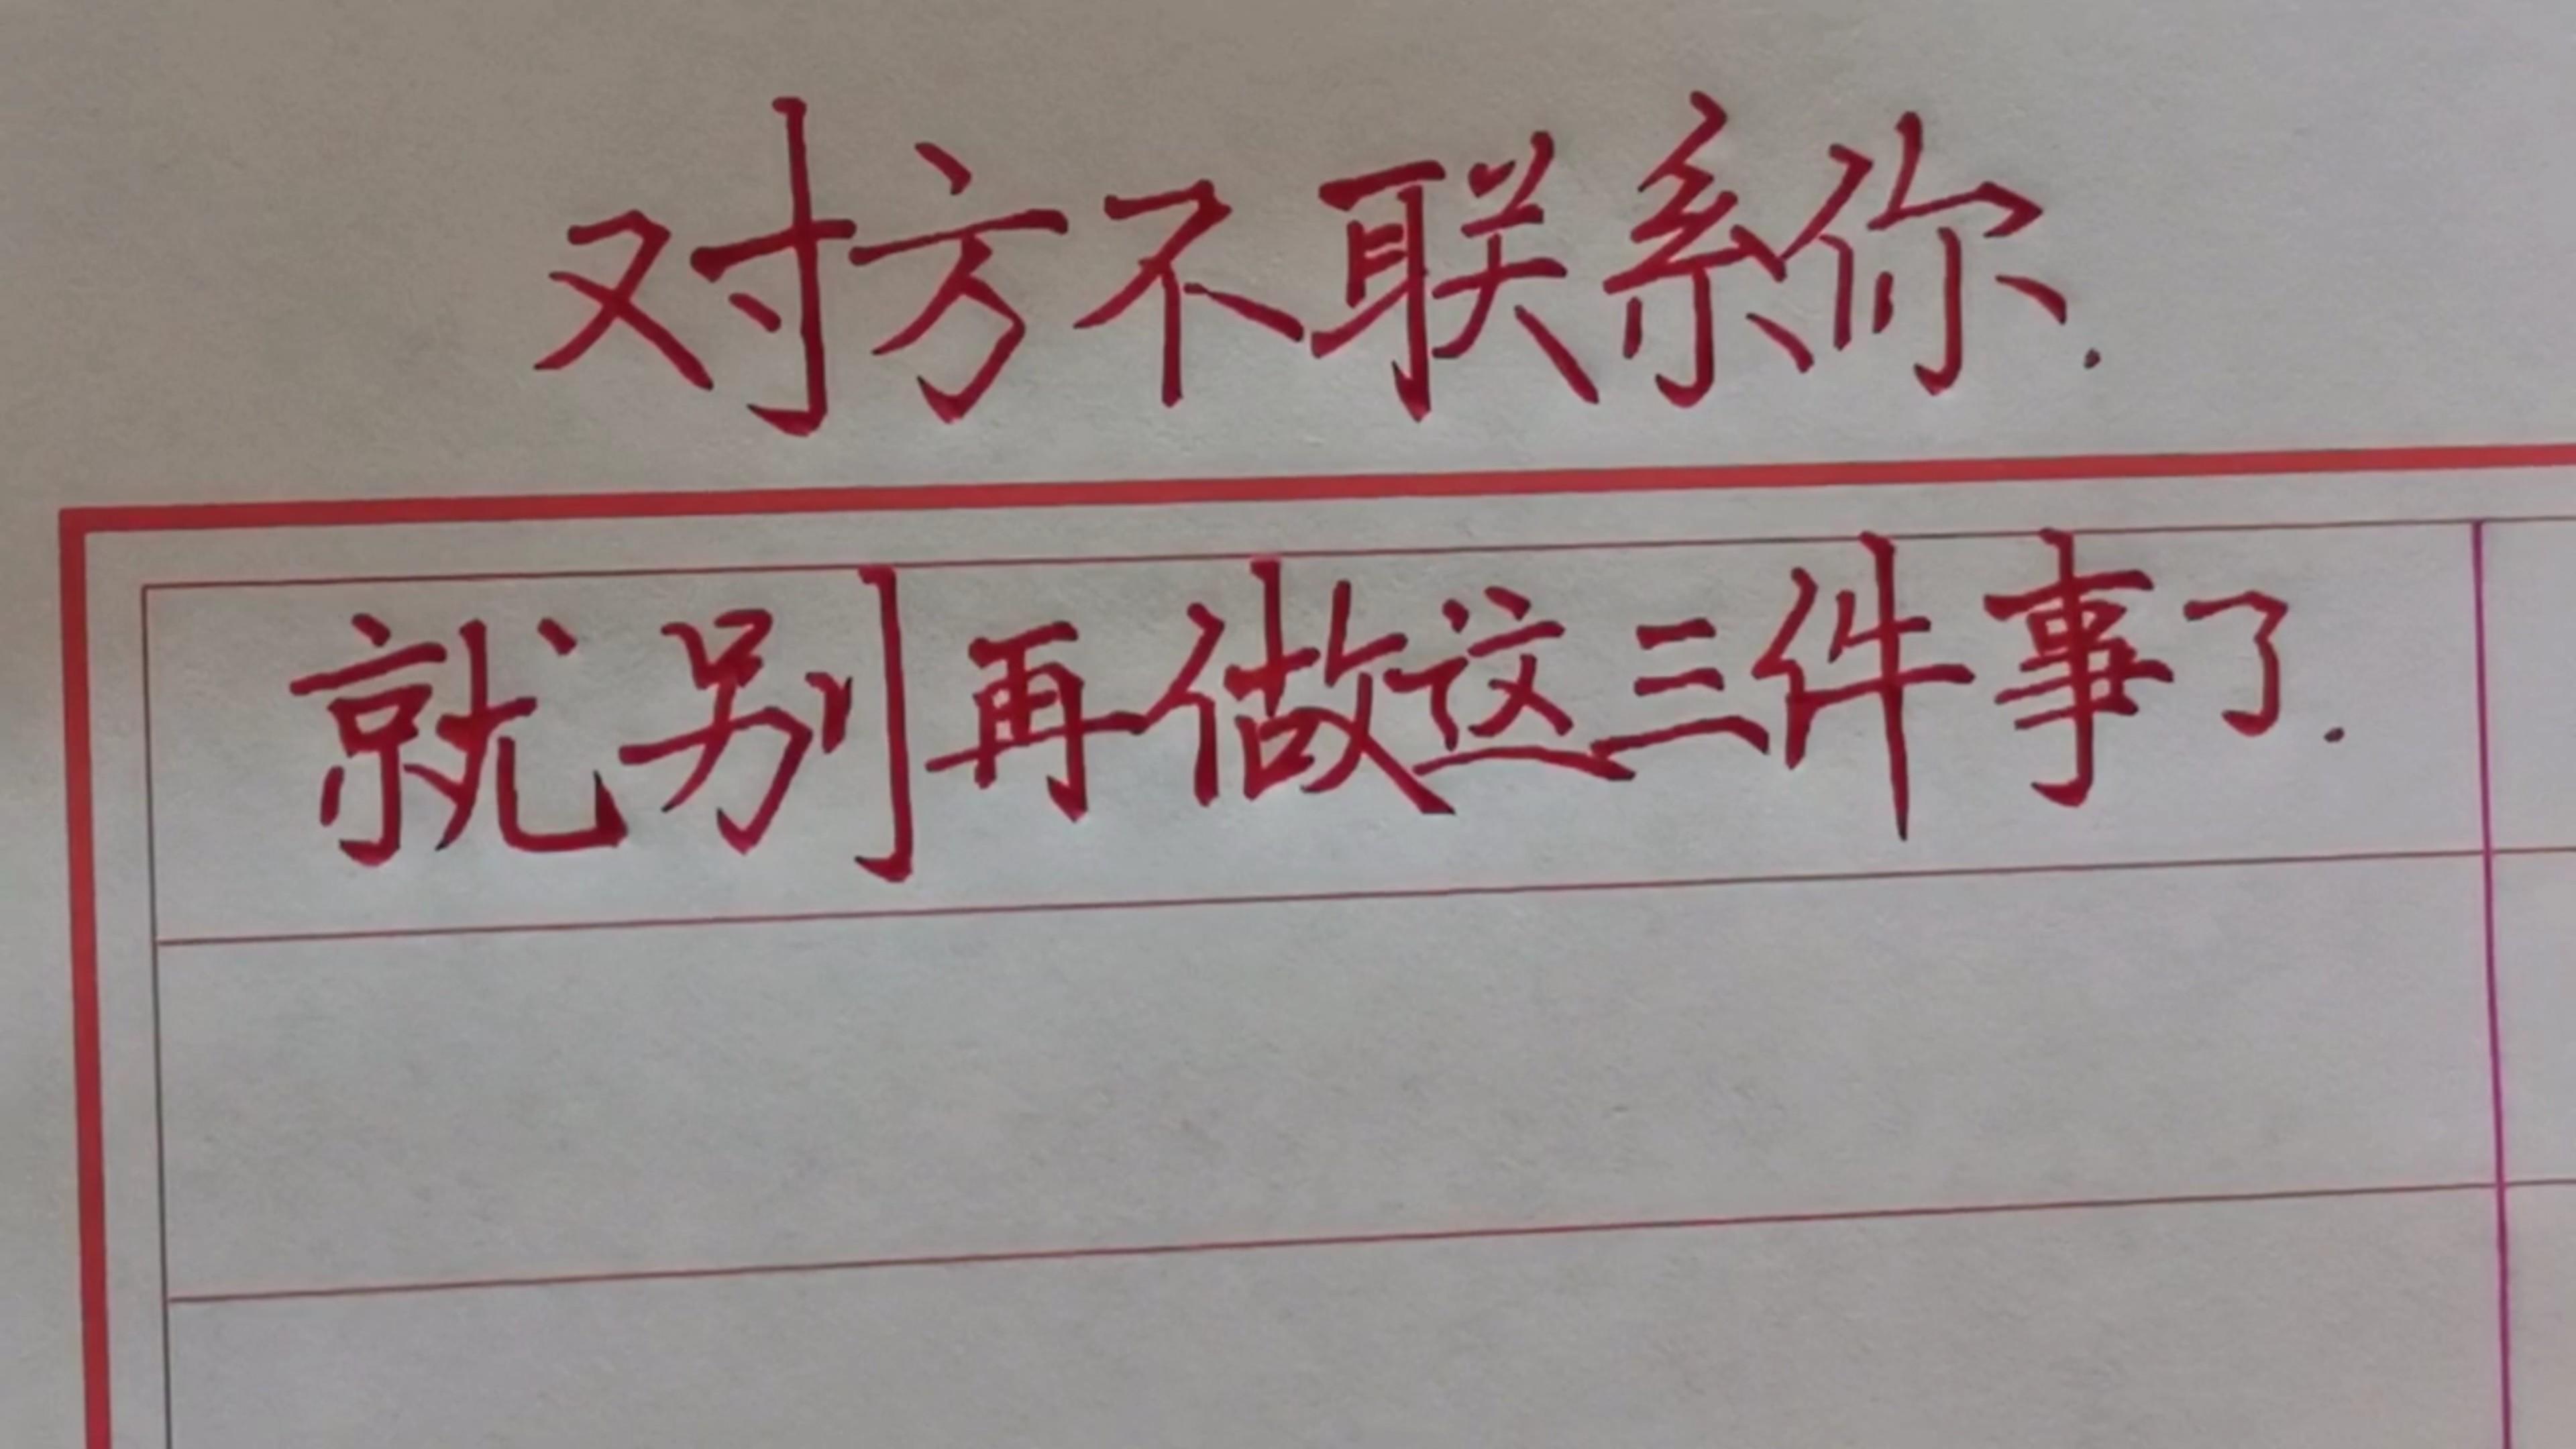 对方不联系你.
就别再做这三件事了.